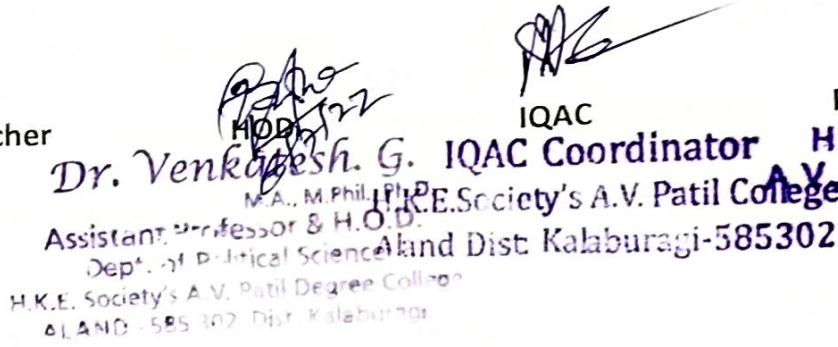 cher
HOD
IQAC
Dr. Venkatesh. G.
M.A., M.Phil., Ph.D.
Assistant Professor & H.O.D.
Dept. of Political Science
H.K.E. Society's A.V. Patil Degree College
ALAND - 585 302. Dist. Kalaburagi.
IQAC Coordinator
H.K.E.Society's A.V. Patil College
Aland Dist: Kalaburagi-585302
H
A.V.